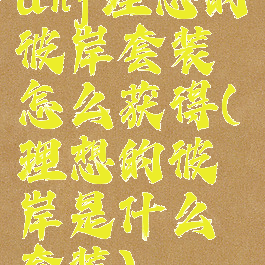 dnf理想的
彼岸套装
怎么获得(
理想的彼
岸是什么
套装)